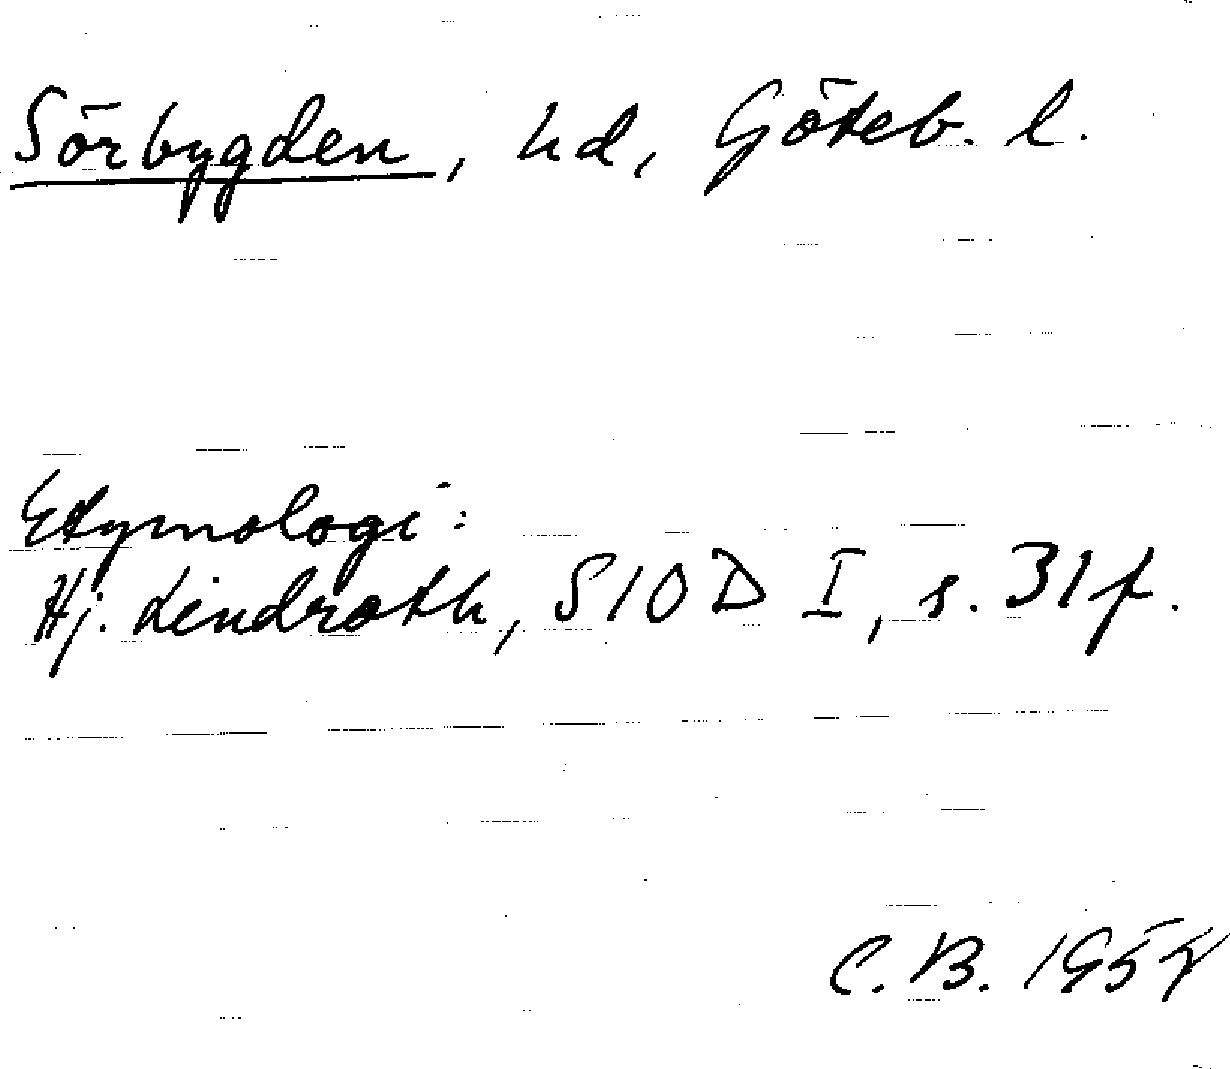 Sörbygden, hd, Göteb. l.
Etymologi:
Hj. Lindroth, SIOD I, s. 31 f.
C. B.